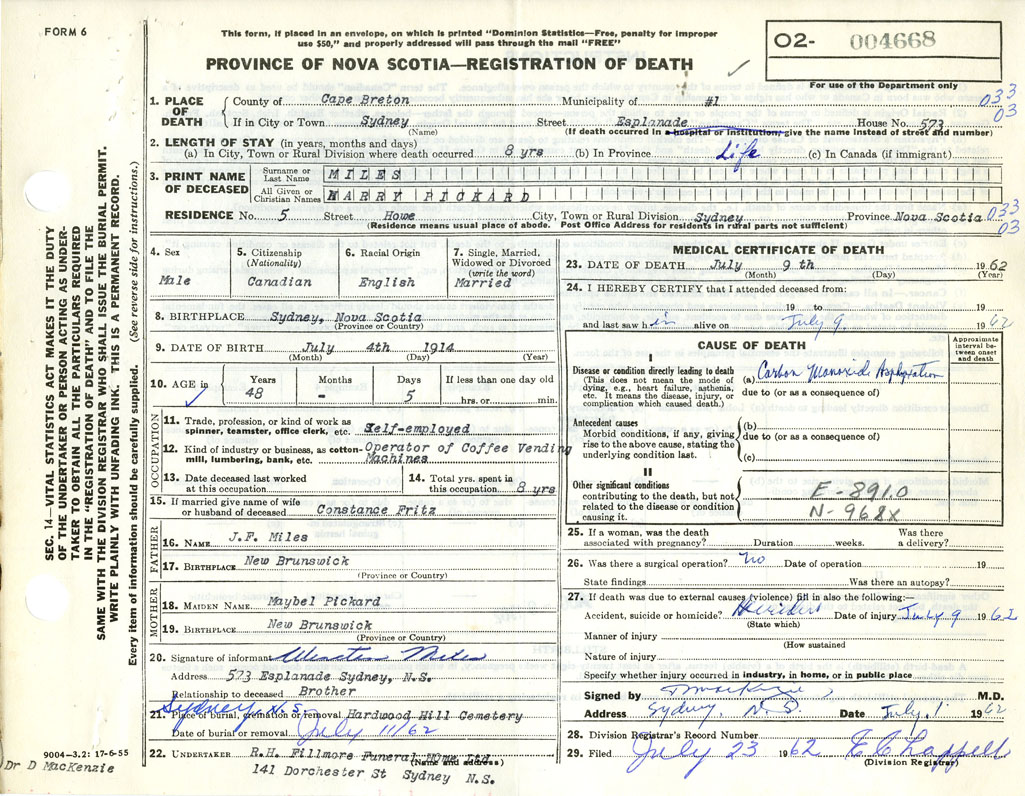 FORM 6
This form, if placed in an envelope, on which is printed "Dominion Statistics—Free, penalty for improper
use $50," and properly addressed will pass through the mail "FREE"
PROVINCE OF NOVA SCOTIA—REGISTRATION OF DEATH
O2- 004668
For use of the Department only
1. PLACE OF DEATH
County of Cape Breton Municipality of #1
033
03
If in City or Town Sydney Street Esplanade House No. 573
(Name) (If death occurred in a hospital or institution, give the name instead of street and number)
2. LENGTH OF STAY (in years, months and days)
(a) In City, Town or Rural Division where death occurred 8 yrs (b) In Province Life (c) In Canada (if immigrant)
3. PRINT NAME OF DECEASED
Surname or Last Name MILES
All Given or Christian Names HARRY PICKARD
RESIDENCE No. 5 Street Howe City, Town or Rural Division Sydney Province Nova Scotia
033
03
(Residence means usual place of abode. Post Office Address for residents in rural parts not sufficient)
4. Sex
Male
5. Citizenship
(Nationality)
Canadian
6. Racial Origin
English
7. Single, Married,
Widowed or Divorced
(write the word)
Married
8. BIRTHPLACE Sydney, Nova Scotia
(Province or Country)
9. DATE OF BIRTH July 4th 1914
(Month) (Day) (Year)
10. AGE in
Years Months Days If less than one day old
48 - 5 hrs. or min.
OCCUPATION
11. Trade, profession, or kind of work as
spinner, teamster, office clerk, etc. Self-employed
12. Kind of industry or business, as cotton-
mill, lumbering, bank, etc. Operator of Coffee Vending
Machines
13. Date deceased last worked
at this occupation
14. Total yrs. spent in
this occupation 8 yrs
15. If married give name of wife
or husband of deceased Constance Fritz
FATHER
16. NAME J.F. Miles
17. BIRTHPLACE New Brunswick
(Province or Country)
MOTHER
18. MAIDEN NAME Maybel Pickard
19. BIRTHPLACE New Brunswick
(Province or Country)
20. Signature of informant Winston Miles
Address 573 Esplanade Sydney, N.S.
Relationship to deceased Brother
Sydney, N.S.
21. Place of burial, cremation or removal Hardwood Hill Cemetery
Date of burial or removal July 11/62
22. UNDERTAKER R.H. Fillmore Funeral Home Ltd.
(Name and address)
141 Dorchester St Sydney N.S.
MEDICAL CERTIFICATE OF DEATH
23. DATE OF DEATH July 9 th 1962
(Month) (Day) (Year)
24. I HEREBY CERTIFY that I attended deceased from:
19 to 19
and last saw him alive on July 9. 1962
CAUSE OF DEATH
Approximate
interval be-
tween onset
and death
I
Disease or condition directly leading to death
(This does not mean the mode of
dying, e.g., heart failure, asthenia,
etc. It means the disease, injury, or
complication which caused death.)
(a) Carbon Monoxide Asphyxiation
due to (or as a consequence of)
Antecedent causes
Morbid conditions, if any, giving
rise to the above cause, stating the
underlying condition last.
(b)
due to (or as a consequence of)
(c)
II
Other significant conditions
contributing to the death, but not
related to the disease or condition
causing it.
E-891.0
N-968X
25. If a woman, was the death
associated with pregnancy? Duration weeks. Was there
a delivery?
26. Was there a surgical operation? No Date of operation 19
State findings Was there an autopsy?
27. If death was due to external causes (violence) fill in also the following:—
Accident, suicide or homicide? Accident Date of injury July 9 1962
(State which)
Manner of injury
(How sustained
Nature of injury
Specify whether injury occurred in industry, in home, or in public place
Signed by D MacKenzie M.D.
Address Sydney, N.S. Date July 1962
28. Division Registrar's Record Number
29. Filed July 23 1962 E C Chappell
(Division Registrar)
SEC. 14—VITAL STATISTICS ACT MAKES IT THE DUTY
OF THE UNDERTAKER OR PERSON ACTING AS UNDER-
TAKER TO OBTAIN ALL THE PARTICULARS REQUIRED
IN THE "REGISTRATION OF DEATH" AND TO FILE THE
SAME WITH THE DIVISION REGISTRAR WHO SHALL ISSUE THE BURIAL PERMIT.
WRITE PLAINLY WITH UNFADING INK. THIS IS A PERMANENT RECORD.
Every item of information should be carefully supplied. (See reverse side for instructions.)
9004-3.2: 17-6-55
Dr D MacKenzie